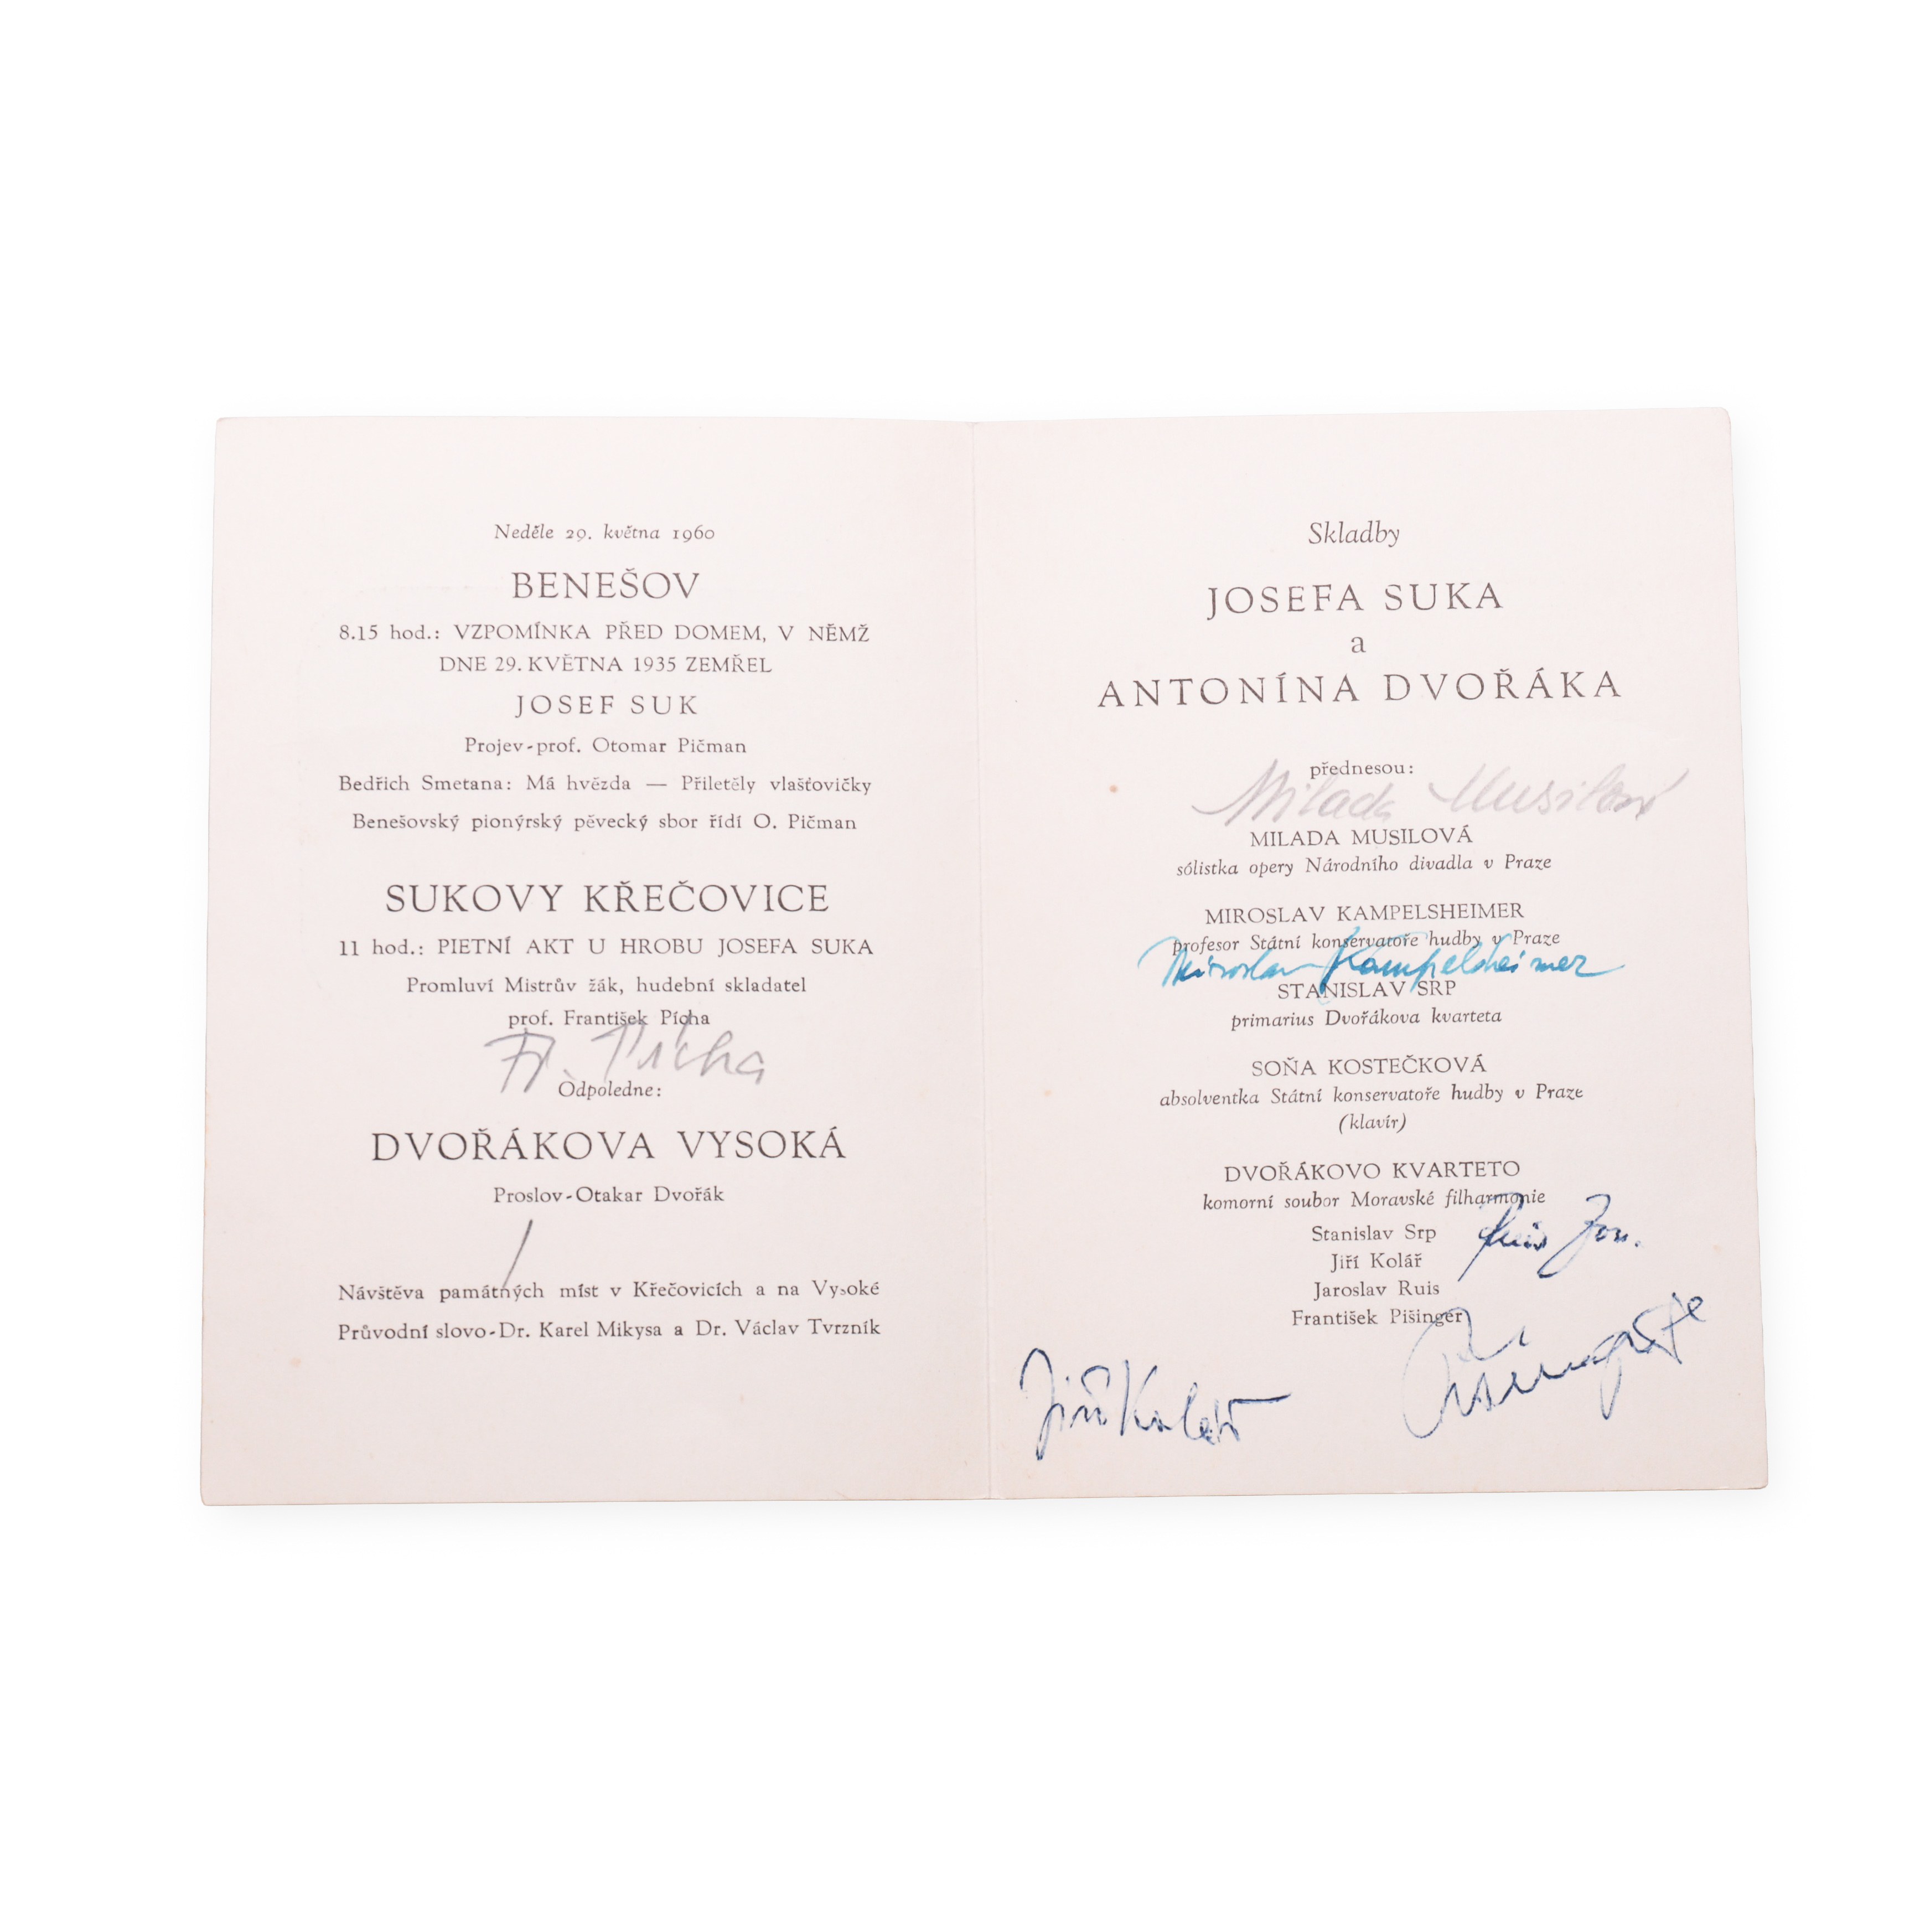 Neděle 29. května 1960
BENEŠOV
8.15 hod.: VZPOMÍNKA PŘED DOMEM, V NĚMŽ
DNE 29. KVĚTNA 1935 ZEMŘEL
JOSEF SUK
Projev-prof. Otomar Pičman
Bedřich Smetana: Má hvězda — Přiletěly vlašťovičky
Benešovský pionýrský pěvecký sbor řídí O. Pičman
SUKOVY KŘEČOVICE
11 hod.: PIETNÍ AKT U HROBU JOSEFA SUKA
Promluví Mistrův žák, hudební skladatel
prof. František Pícha
Fr. Pícha
Odpoledne:
DVOŘÁKOVA VYSOKÁ
Proslov-Otakar Dvořák
Návštěva památných míst v Křečovicích a na Vysoké
Průvodní slovo-Dr. Karel Mikysa a Dr. Václav Tvrzník
Skladby
JOSEFA SUKA
a
ANTONÍNA DVOŘÁKA
přednesou:
Milada Musilová
MILADA MUSILOVÁ
sólistka opery Národního divadla v Praze
MIROSLAV KAMPELSHEIMER
profesor Státní konservatoře hudby v Praze
Miroslav Kampelsheimer
STANISLAV SRP
primarius Dvořákova kvarteta
SOŇA KOSTEČKOVÁ
absolventka Státní konservatoře hudby v Praze
(klavír)
DVOŘÁKOVO KVARTETO
komorní soubor Moravské filharmonie
Stanislav Srp
Ruis
Jiří Kolář
Jaroslav Ruis
František Pišinger
Jiří Kolář